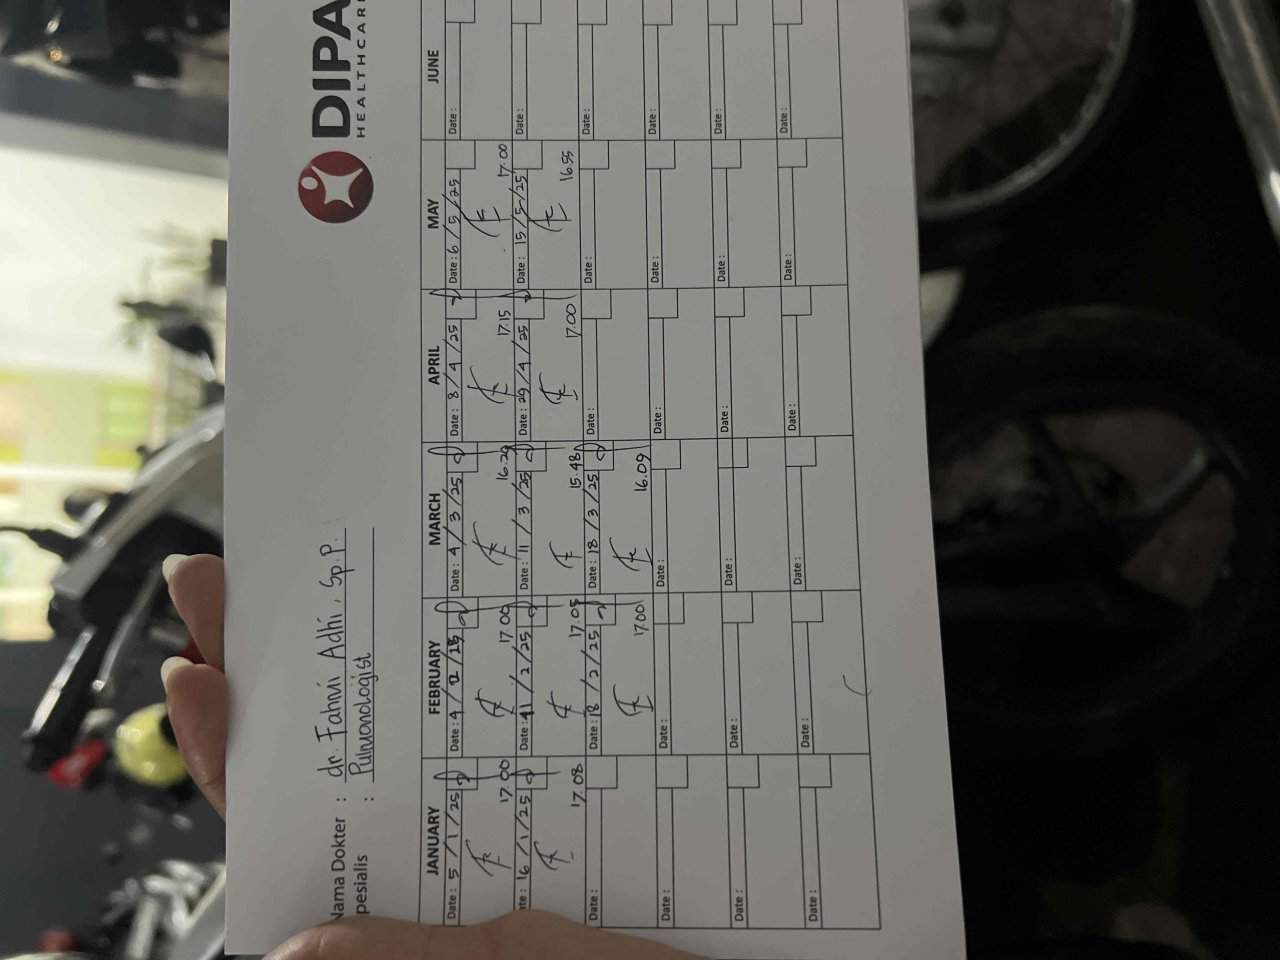 DIPA
HEALTHCAR
Nama Dokter : dr. Fahmi Adhi, Sp P.
pesialis : Pulmonologist
JANUARY FEBRUARY MARCH APRIL MAY JUNE
Date : 5 / 1 / 25 Date : 4 / 2 / 25 Date : 4 / 3 / 25 Date : 8 / 4 / 25 Date : 6 / 5 / 25 Date :
17.00 17.00 16.29 17.15 17.00
te : 16 / 1 / 25 Date : 11 / 2 / 25 Date : 11 / 3 / 25 Date : 29 / 4 / 25 Date : 15 / 5 / 25 Date :
17.08 17.05 15.48 17.00 16.55
Date : Date : 18 / 2 / 25 Date : 18 / 3 / 25 Date : Date : Date :
17.00 16.09
Date : Date : Date : Date : Date : Date :
Date : Date : Date : Date : Date : Date :
Date : Date : Date : Date : Date : Date :